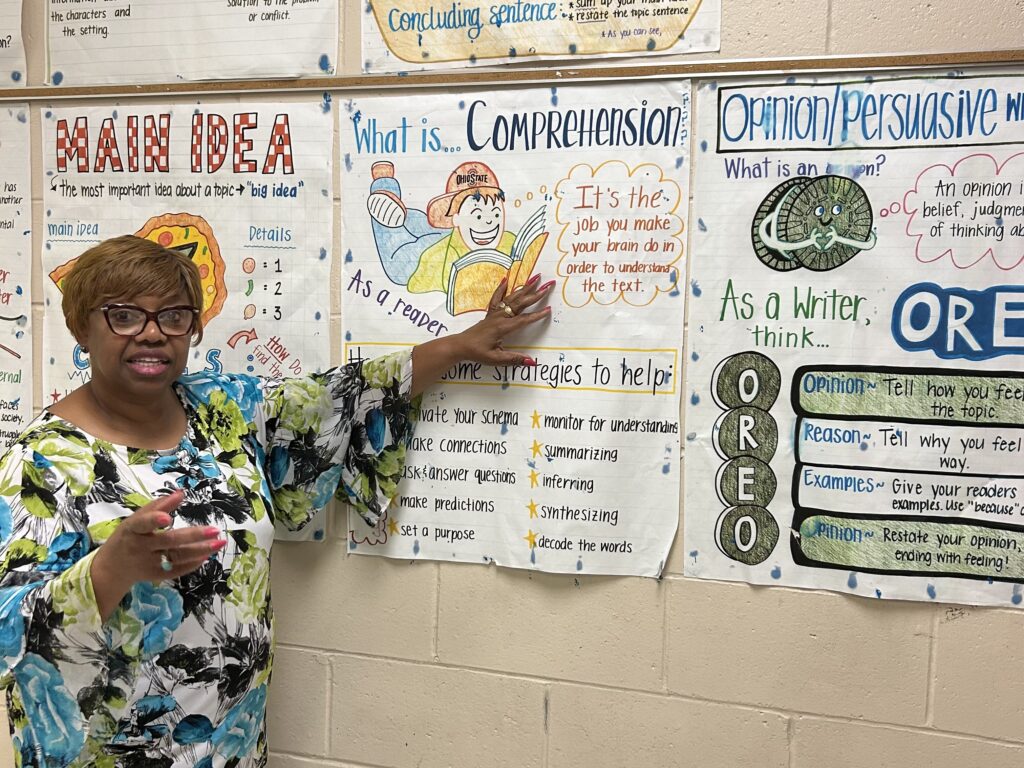 the characters and
the setting.
solution to the problem
or conflict.
Concluding sentence:
restate the topic sentence
*As you can see,
MAIN IDEA
the most important idea about a topic → "big idea"
main idea
Details
= 1
= 2
= 3
How Do
What is... COMPREHENSION
OHIO STATE
It's the
job you make
your brain do in
order to understand
the text.
As a reader
some strategies to help:
make connections
ask & answer questions
make predictions
set a purpose
monitor for understanding
summarizing
inferring
synthesizing
decode the words
OPINION/PERSUASIVE
What is an opinion?
An opinion
belief,
of thinking
As a Writer,
think...
ORE
O
R
E
O
Opinion~ Tell how you feel
the topic.
Reason~ Tell why you feel
way.
Examples~ Give your readers
examples. Use "because"
Opinion~ Restate your opinion,
ending with feeling!